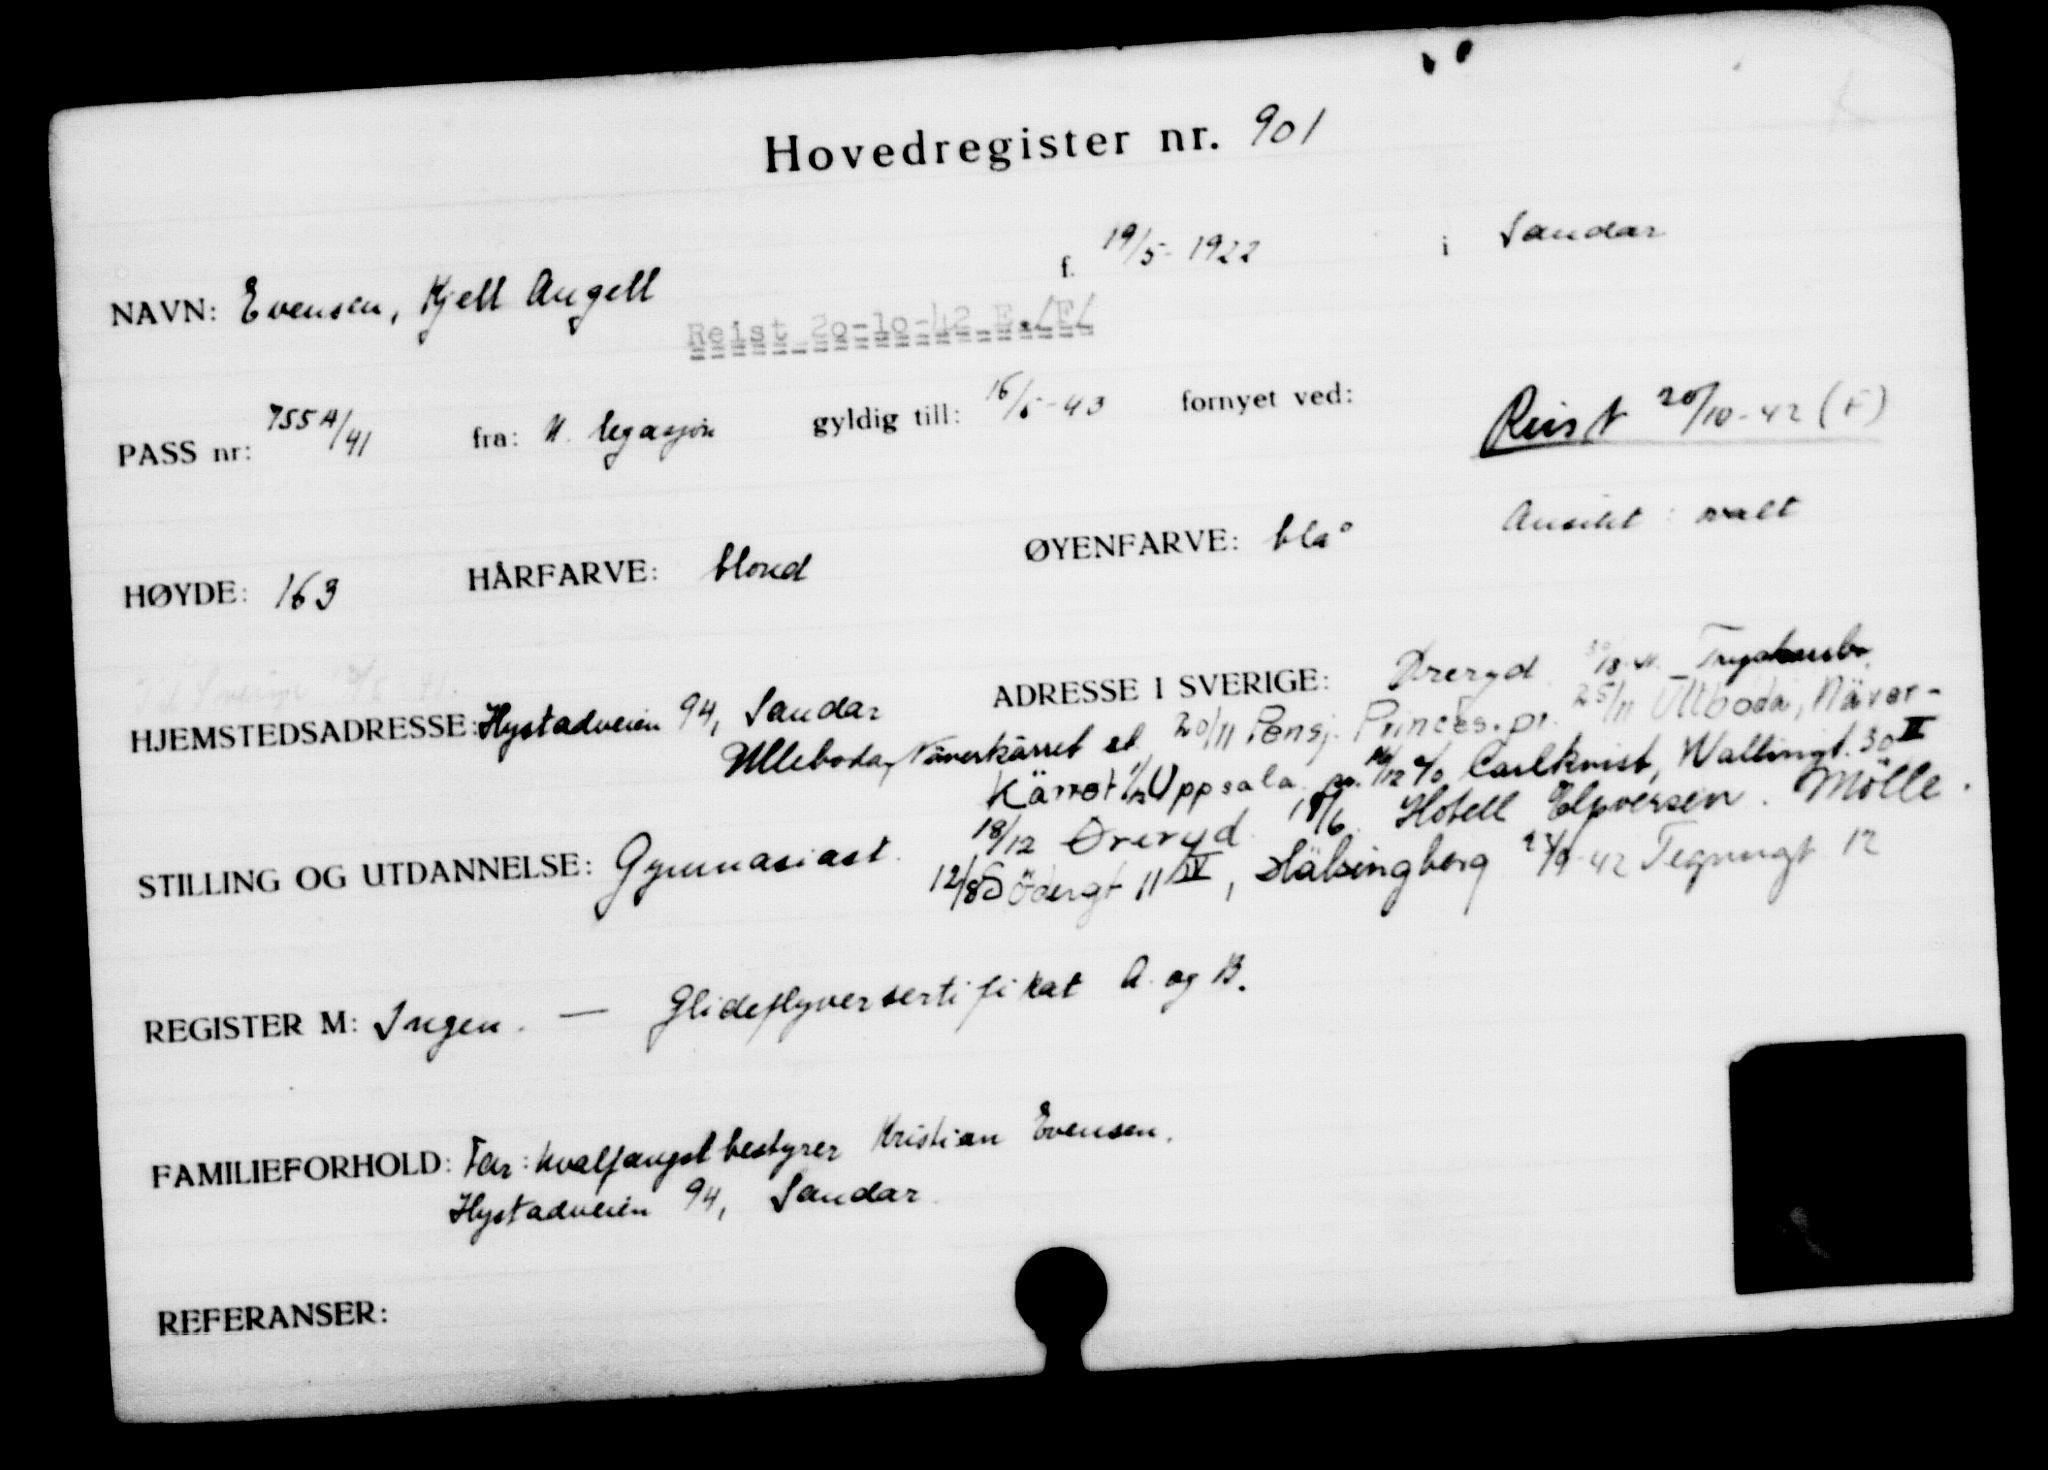 Hovedregister nr. 901
NAVN: Evensen, Kjell Angell f. 19/5-1922 i Sandar
Reist 20-10-42 E./F/
PASS nr: 755A/41 fra: N. legasjon gyldig till: 16/5-43 fornyet ved: Reist 20/10-42 (F)
HØYDE: 163 HÅRFARVE: blond ØYENFARVE: blå Ansikt: ovalt
Til Sverige
HJEMSTEDSADRESSE: Hystadveien 94, Sandar ADRESSE I SVERIGE: Øreryd
Ulleboda, Näverkärret st. 20/11 Pensj. Princes. pr. 25/11 Ulboda, Näver-
Kärret Uppsala c/o Carlkvist, Wallingt. 30 II
18/12 Øreryd. 18/6. Hotell Elfversen. Mölle.
STILLING OG UTDANNELSE: Gymnasiast. 12/8 Södergt 11 IV, Hälsingborg Tegnergt 12
REGISTER M: Ingen. — Glideflyversertifikat A. og B.
FAMILIEFORHOLD: Far: hvalfangstbestyrer Kristian Evensen.
Hystadveien 94, Sandar.
REFERANSER: